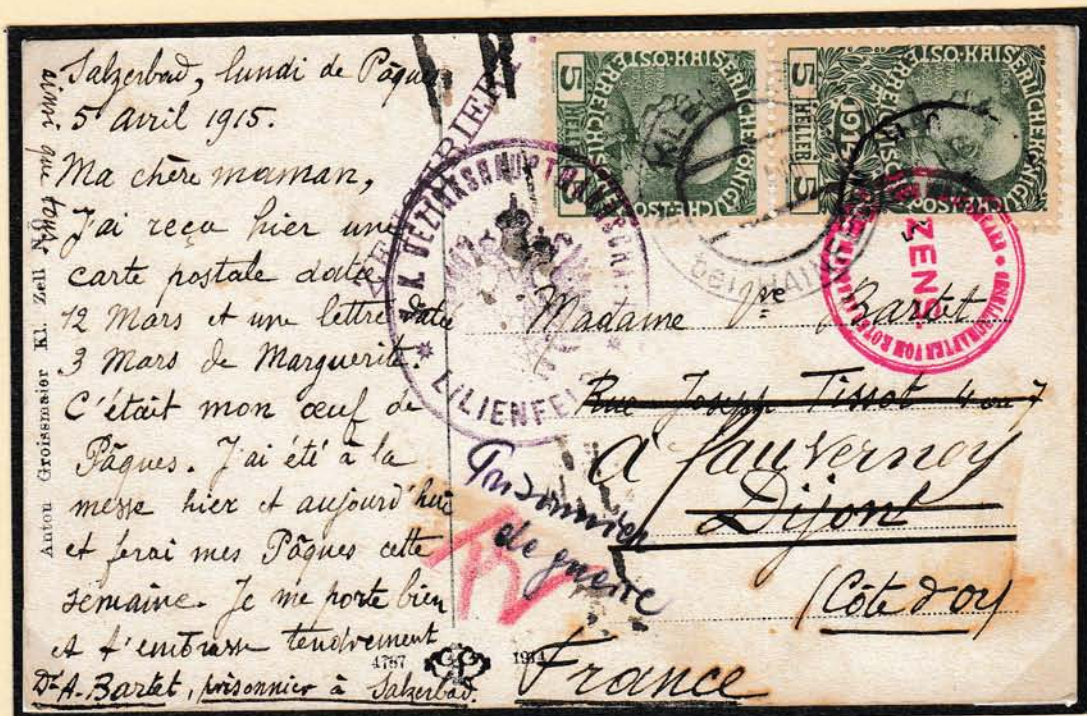 Salzerbad, lundi de Pâques
5 avril 1915.
Ma chère maman,
J'ai reçu hier une
carte postale datée
12 Mars et une lettre datée
3 Mars de Marguerite.
C'était mon œuf de
Pâques. J'ai été à la
messe hier et aujourd'hui
et ferai mes Pâques cette
semaine. Je me porte bien
et t'embrasse tendrement
ainsi que tous
Dr A. Bartet, prisonnier à Salzerbad.
Anton Groissmaier Kl. Zell N.Ö.
4787 1914
ZENSURIERT
K. K. BEZIRKSHAUPTMANNSCHAFT
* LILIENFELD *
5 HELLER 5
KAISERLICHE KÖNIGLICHE ÖSTERREICHISCHE POST
5 HELLER 1915 5
KAISERLICHE KÖNIGLICHE ÖSTERREICHISCHE POST
bei HAINFELD
ZENS.
VOM ROTEN
Madame Vve Bartet
Rue Joseph Tissot 4 ou 7
à Fauverney
Dijon
(Côte d'or)
France
Prisonnier
de guerre